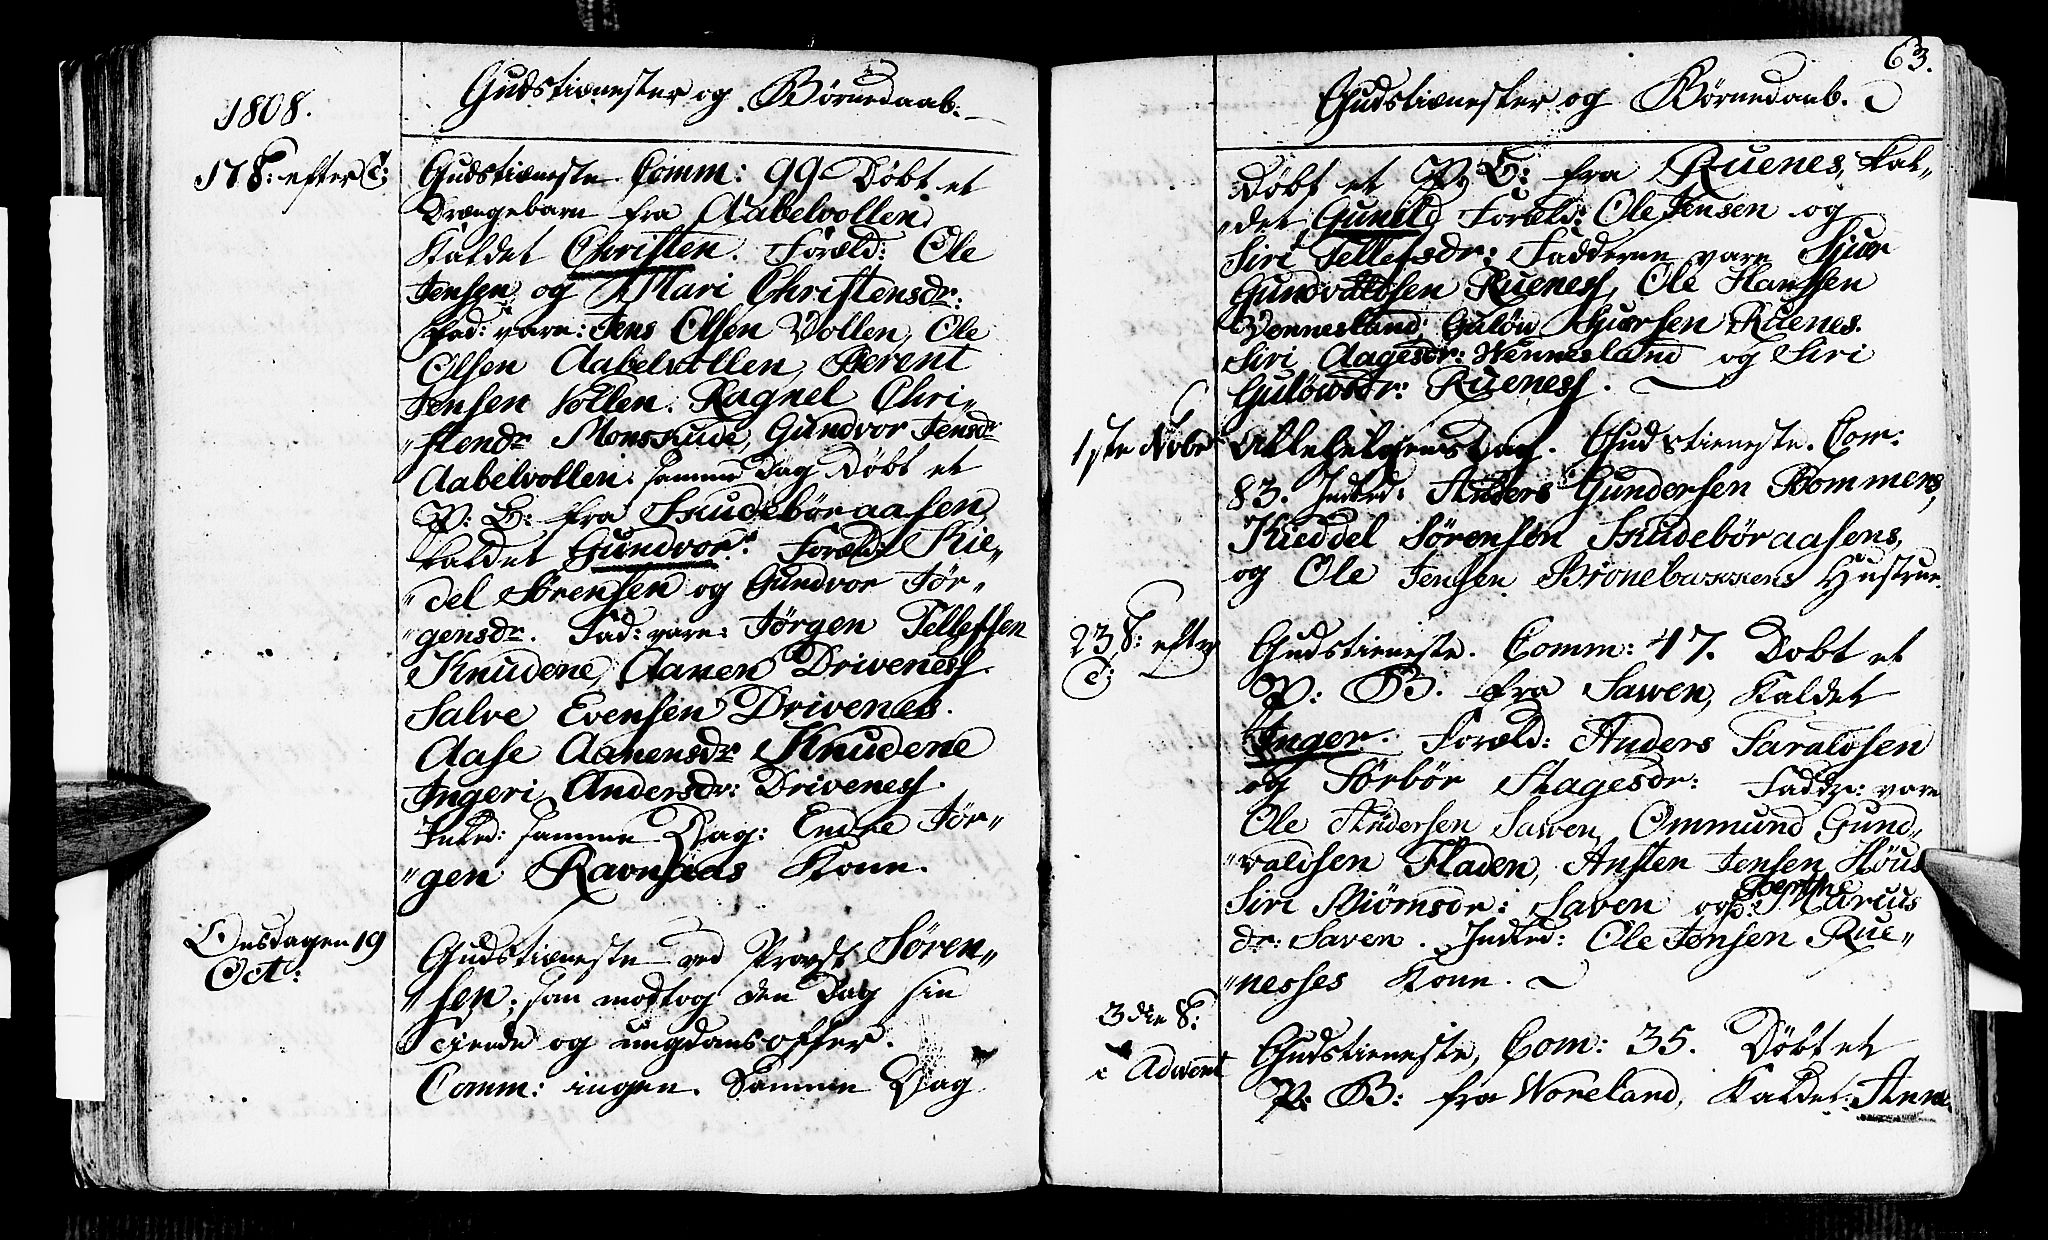 1808.
Gudstienester og Börnedaab.
17 S: efter T:
Gudstieneste Comm: 99 Döbt et
Drængebarn fra Aabelvollen
Kaldet Christen. Foræld: Ole
Jensen og Mari Christensdr:
Fad: vare: Jens Olsen Vollen, Ole
Olsen Aabelvollen, Berent
Jensen Sollen. Ragnel Chri„
„stendr Monskude, Gundvor Jensdr
Aabelvollen. samme Dag Döbt et
P: B: fra Skudeböraasen
kaldet Gundvor. Foræld: Kie„
„del Sörensen og Gundvor Jör„
„gensdr. Fad: vare: Jörgen Tellefsen
Knudene, Aanen Drivenes.
Salve Evensen Drivenes.
Aase Aanensdr Knudene
Ingeri Andersdr: Drivenes.
Intrd: samme Dag: Endre Jör„
„gen Ravnaas Kone.
Onsdagen 19
Oct:
Gudstieneste ved Provst Sören„
„sen; som modtog den Dag sin
Tiende og ungdoms offer.
Comm: ingen. Samme Dag
63.
Gudstienester og Börnedaab.
Döbt et P. B: fra Ruenes, kal„
„det Gunild Foræld: Ole Jensen og
Siri Tellefsdr: Fadderne vare Siur
Gundvaldsen Ruenes, Ole Hansen
Vennesland Gulöv Siursen Ruenes.
Siri Aagesdr: Wennesland og Siri
Gulöwsdr: Ruenes.
1ste Nobr
Allehelgensdag. Gudstieneste. Com:
83. Intrd: Anders Gundersen Bommens,
Kieddel Sörensen Skudeböraasens,
og Ole Jensen Bronebakkens Hustruer
23 S: efter
T:
Gudstieneste. Comm: 47. Dobt et
P: B. fra Sawen, Kaldet
Inger. Foræld: Anders Taraldsen
og Törbör Aagesdr: Faddre: vare
Ole Andersen Sawen, Ommund Gund„
„valdsen Fladen, Ansten Jensen Höus
Siri Biörnsdr: Saven og Berthe Marcus
dr: Saven. Intrd: Ole Jensen Rue„
„nesses Kone.
3die S:
i Advent
Gudstieneste, Com: 35. Döbt et
P: B: fra Woreland, Kaldet: Anne.